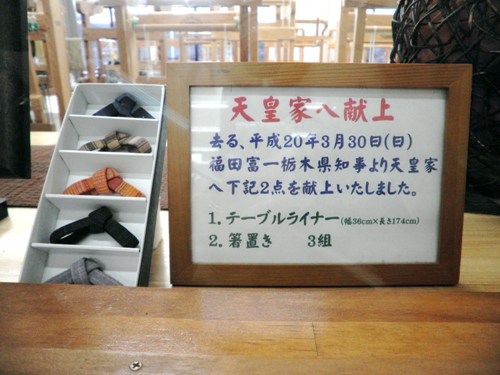 天皇家へ献上
去る、平成20年3月30日(日)
福田富一栃木県知事より天皇家
へ下記2点を献上いたしました。
1. テーブルライナー(幅36cm×長さ174cm)
2. 箸置き 3組